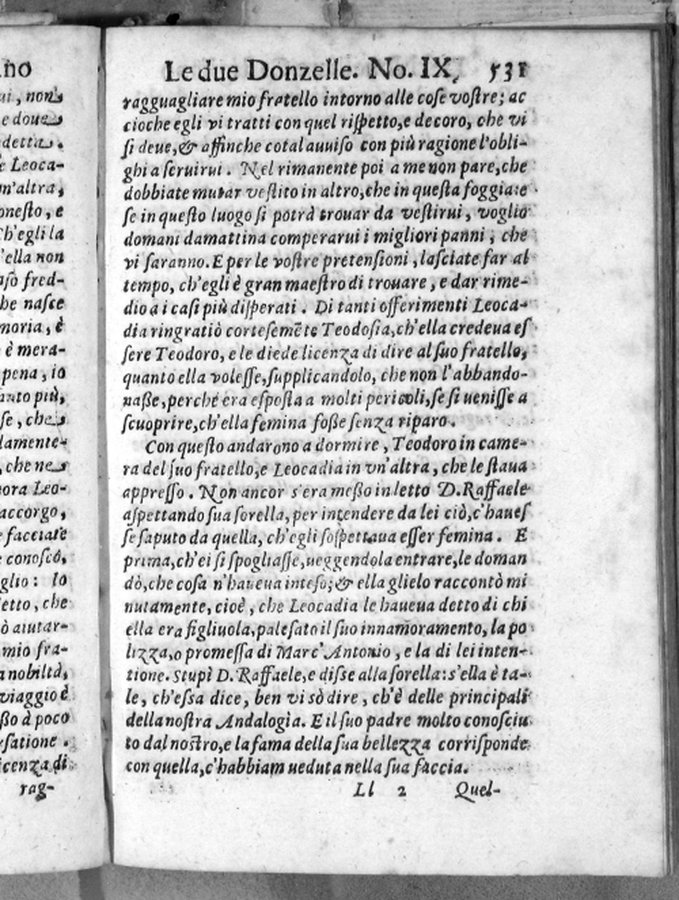 ano
ui, non
e doue
detta.
e Leoca-
n'altra,
onesto, e
Ch'egli la
'ella non
aso fred-
he nasce
moria, è
è mera-
pena, io
anto più,
se, che
damente-
, che ne
ora Leo-
accorgo,
e facciate
e conosco,
glio: Io
detto, che
ò aiutar-
mio fra-
a nobiltà,
viaggio è
ßo à poco
rsatione.
icenza di
rag-
Le due Donzelle. No. IX. 531
ragguagliare mio fratello intorno alle cose vostre; ac
cioche egli vi tratti con quel rispetto, e decoro, che vi
si deue, & affinche cotal auuiso con più ragione l'obli-
ghi a seruirui. Nel rimanente poi a me non pare, che
dobbiate mutar vestito in altro, che in questa foggia: e
se in questo luogo si potrà trouar da vestirui, voglio
domani damattina comperarui i migliori panni, che
vi saranno. E per le vostre pretensioni, lasciate far al
tempo, ch'egli è gran maestro di trouare, e dar rime-
dio a i casi più disperati. Di tanti offerimenti Leoca-
dia ringratiò cortesemēte Teodosia, ch'ella credeua es
sere Teodoro, e le diede licenza di dire al suo fratello,
quanto ella volesse, supplicandolo, che non l'abbando-
naße, perché era esposta a molti pericoli, se si uenisse a
scuoprire, ch'ella femina foße senza riparo.
Con questo andarono a dormire, Teodoro in came-
ra del suo fratello, e Leocadia in vn'altra, che le staua
appresso. Non ancor s'era meßo in letto D. Raffaele
aspettando sua sorella, per intendere da lei ciò, c'haues
se saputo da quella, ch'egli sospettaua esser femina. E
prima, ch'ei si spogliasse, ueggendola entrare, le doman
dò, che cosa n'haueua inteso; & ella glielo raccontò mi
nutamente, cioè, che Leocadia le haueua detto di chi
ella era figliuola, palesato il suo innamoramento, la po
lizza, o promessa di Marc' Antonio, e la di lei inten-
tione. Stupì D. Raffaele, e disse alla sorella: s'ella è ta-
le, ch'essa dice, ben vi sò dire, ch'è delle principali
della nostra Andalogìa. E il suo padre molto conosciu
to dal nostro, e la fama della sua bellezza corrisponde
con quella, c'habbiam ueduta nella sua faccia.
Ll 2 Quel-